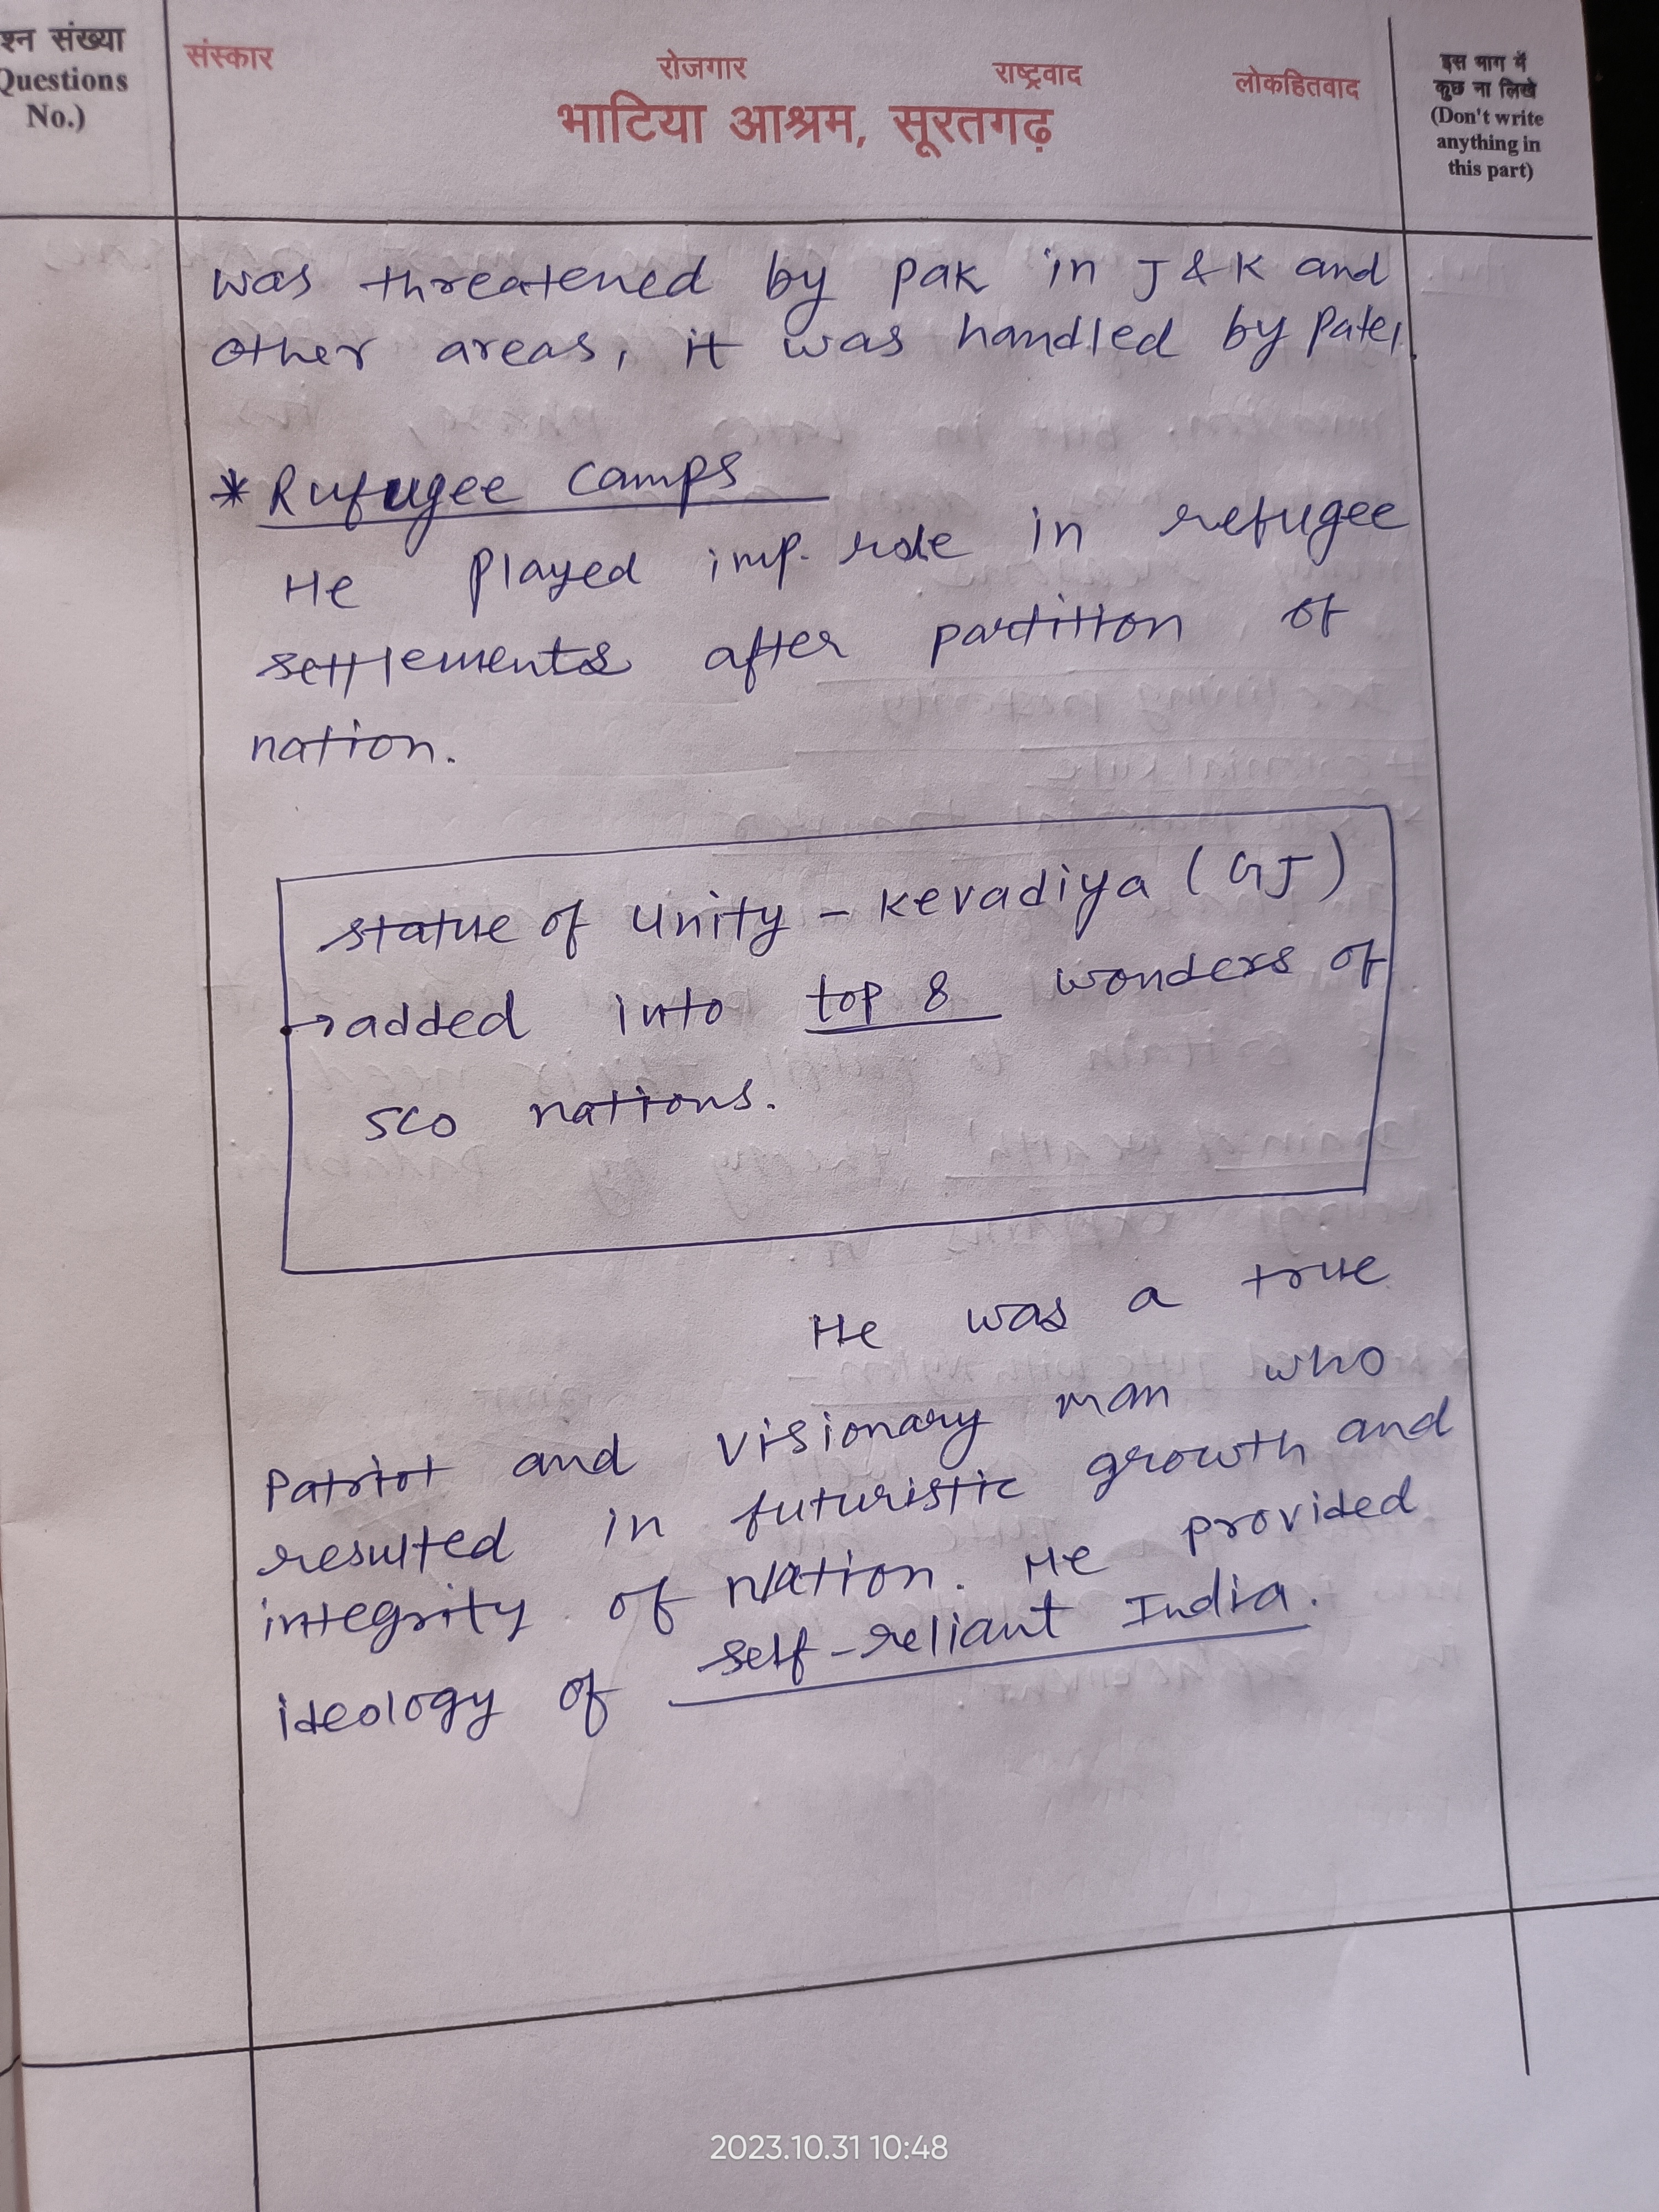 श्न संख्या
Questions
No.)
संस्कार रोजगार राष्ट्रवाद लोकहितवाद
भाटिया आश्रम, सूरतगढ़
इस भाग में
कुछ ना लिखे
(Don't write
anything in
this part)
was threatened by pak in J & K and
other areas, it was handled by Patel.
* Rufugee Camps
He played imp. role in refugee
settlements after partition of
nation.
statue of Unity - Kevadiya (GJ)
→ added into top 8 wonders of
SCO nations.
He was a true
Patriot and visionary man who
resulted in futuristic growth and
integrity of Nation. He provided
ideology of self-reliant India.
2023.10.31 10:48